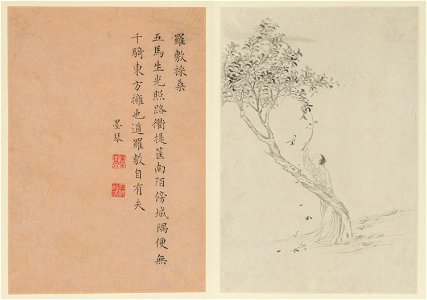 羅敷採桑
五馬生光照路衢提筐向陌傍城隅便無
千騎東方擁也道羅敷自有夫
墨琴